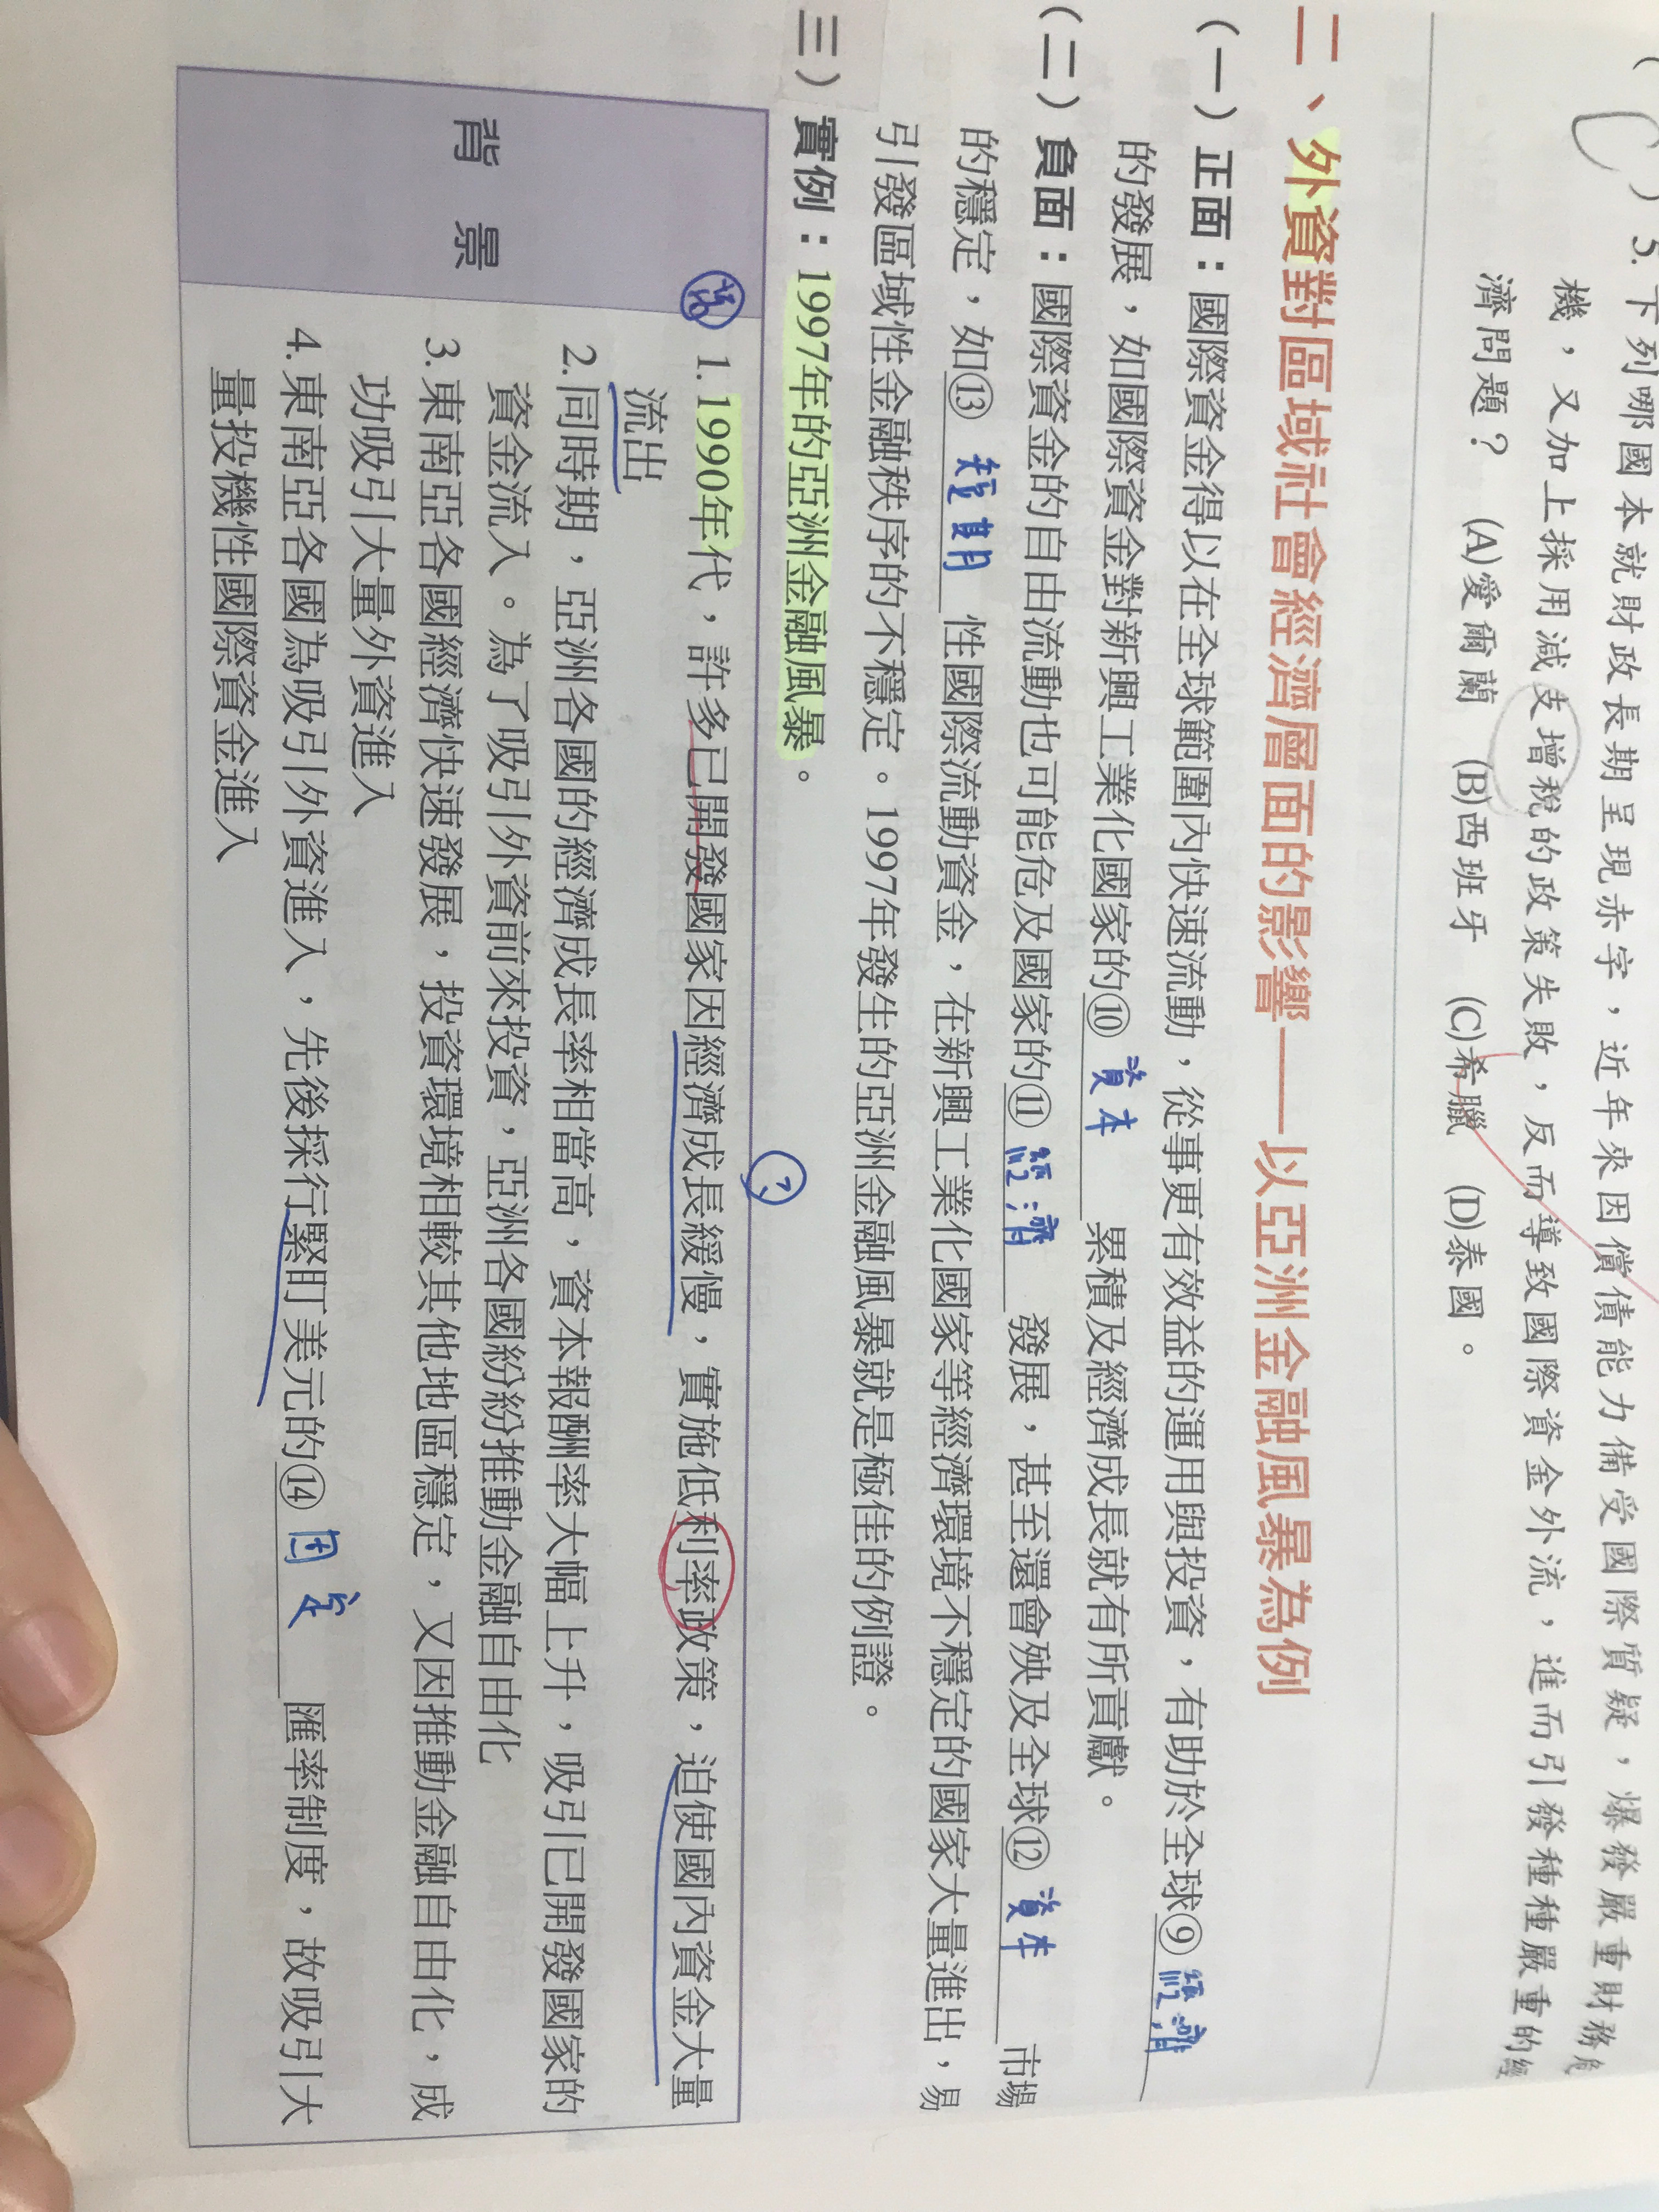 ( C ) 5. 下列哪國本就財政長期呈現赤字，近年來因償債能力備受國際質疑，爆發嚴重財務危
機，又加上採用減支增稅的政策失敗，反而導致國際資金外流，進而引發種種嚴重的經
濟問題？ (A)愛爾蘭 (B)西班牙 (C)希臘 (D)泰國。
二、外資對區域社會經濟層面的影響——以亞洲金融風暴為例
(一) 正面：國際資金得以在全球範圍內快速流動，從事更有效益的運用與投資，有助於全球⑨經濟
的發展，如國際資金對新興工業化國家的⑩資本累積及經濟成長就有所貢獻。
(二) 負面：國際資金的自由流動也可能危及國家的⑪經濟發展，甚至還會殃及全球⑫資本市場
的穩定，如⑬短期性國際流動資金，在新興工業化國家等經濟環境不穩定的國家大量進出，易
引發區域性金融秩序的不穩定。1997年發生的亞洲金融風暴就是極佳的例證。
三) 實例：1997年的亞洲金融風暴。
背景
?
1. 1990年代，許多已開發國家因經濟成長緩慢，實施低利率政策，迫使國內資金大量
流出
2. 同時期，亞洲各國的經濟成長率相當高，資本報酬率大幅上升，吸引已開發國家的
資金流入。為了吸引外資前來投資，亞洲各國紛紛推動金融自由化
3. 東南亞各國經濟快速發展，投資環境相較其他地區穩定，又因推動金融自由化，成
功吸引大量外資進入
4. 東南亞各國為吸引外資進入，先後採行緊盯美元的⑭固定匯率制度，故吸引大
量投機性國際資金進入